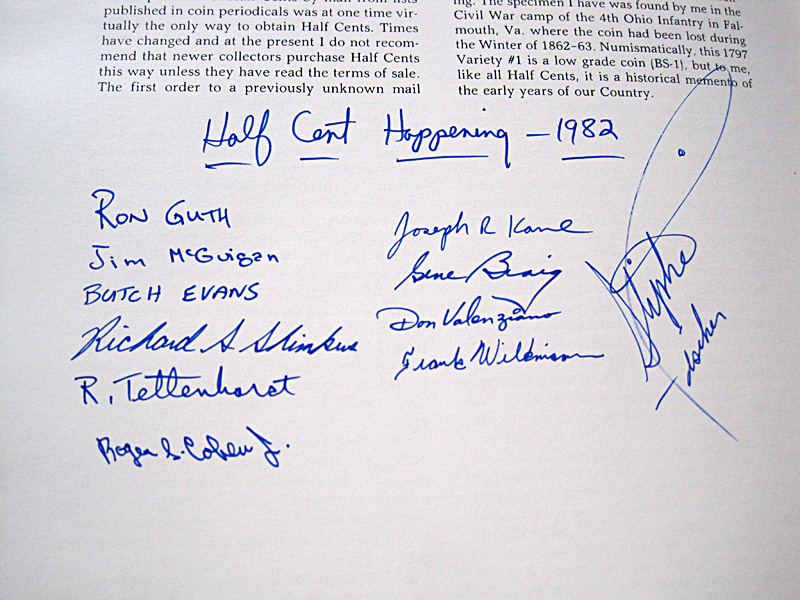 published in coin periodicals was at one time vir-
tually the only way to obtain Half Cents. Times
have changed and at the present I do not recom-
mend that newer collectors purchase Half Cents
this way unless they have read the terms of sale.
The first order to a previously unknown mail
ing. The specimen I have was found by me in the
Civil War camp of the 4th Ohio Infantry in Fal-
mouth, Va. where the coin had been lost during
the Winter of 1862-63. Numismatically, this 1797
Variety #1 is a low grade coin (BS-1), but to me,
like all Half Cents, it is a historical memento of
the early years of our Country.
Half Cent Happening - 1982
Ron Guth
Jim McGuigan
BUTCH EVANS
Richard S Slimkus
R. Tettenhorst
Roger S. Cohen Jr.
Joseph R Kane
Gene Braig
Don Valenziano
Frank Wilkinson